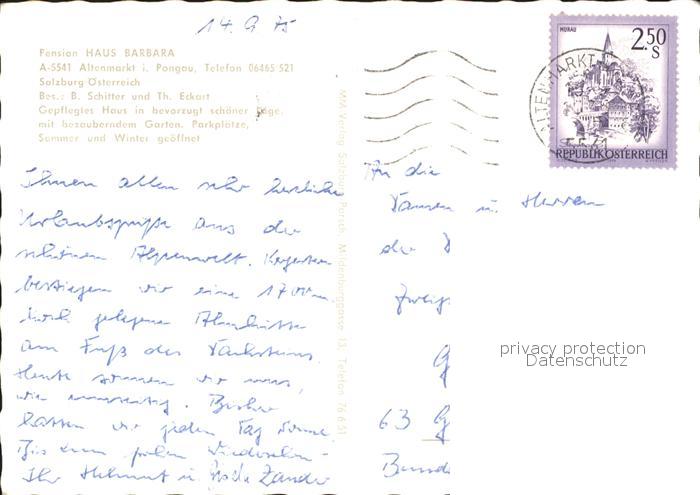 14. 9. 75
Pension HAUS BARBARA
A-5541 Altenmarkt i. Pongau, Telefon 06465/521
Salzburg-Österreich
Bes.: B. Schitter und Th. Eckart
Gepflegtes Haus in bevorzugt schöner Lage,
mit bezauberndem Garten. Parkplätze,
Sommer und Winter geöffnet
Ihnen allen sehr herzliche
Urlaubsgrüße aus der
schönen Alpenwelt. Vorgestern
bestiegen wir eine 1700 m
hoch gelegene Almhütte
am Fuß des Dachsteins.
Heute sonnen wir uns,
wie immer. Bisher
hatten wir jeden Tag Sonne.
Bis zum frohen Wiedersehn -
Ihr Helmut u. Gisela Zander
MM-Verlag Salzburg, Parsch, Mildenburggasse 13, Telefon 76 6 51
MURAU
2.50
S
REPUBLIK ÖSTERREICH
ALTENMARKT
An die
Damen u. Herren
der D
Zweig
G
63 G
Bund
privacy protection
Datenschutz